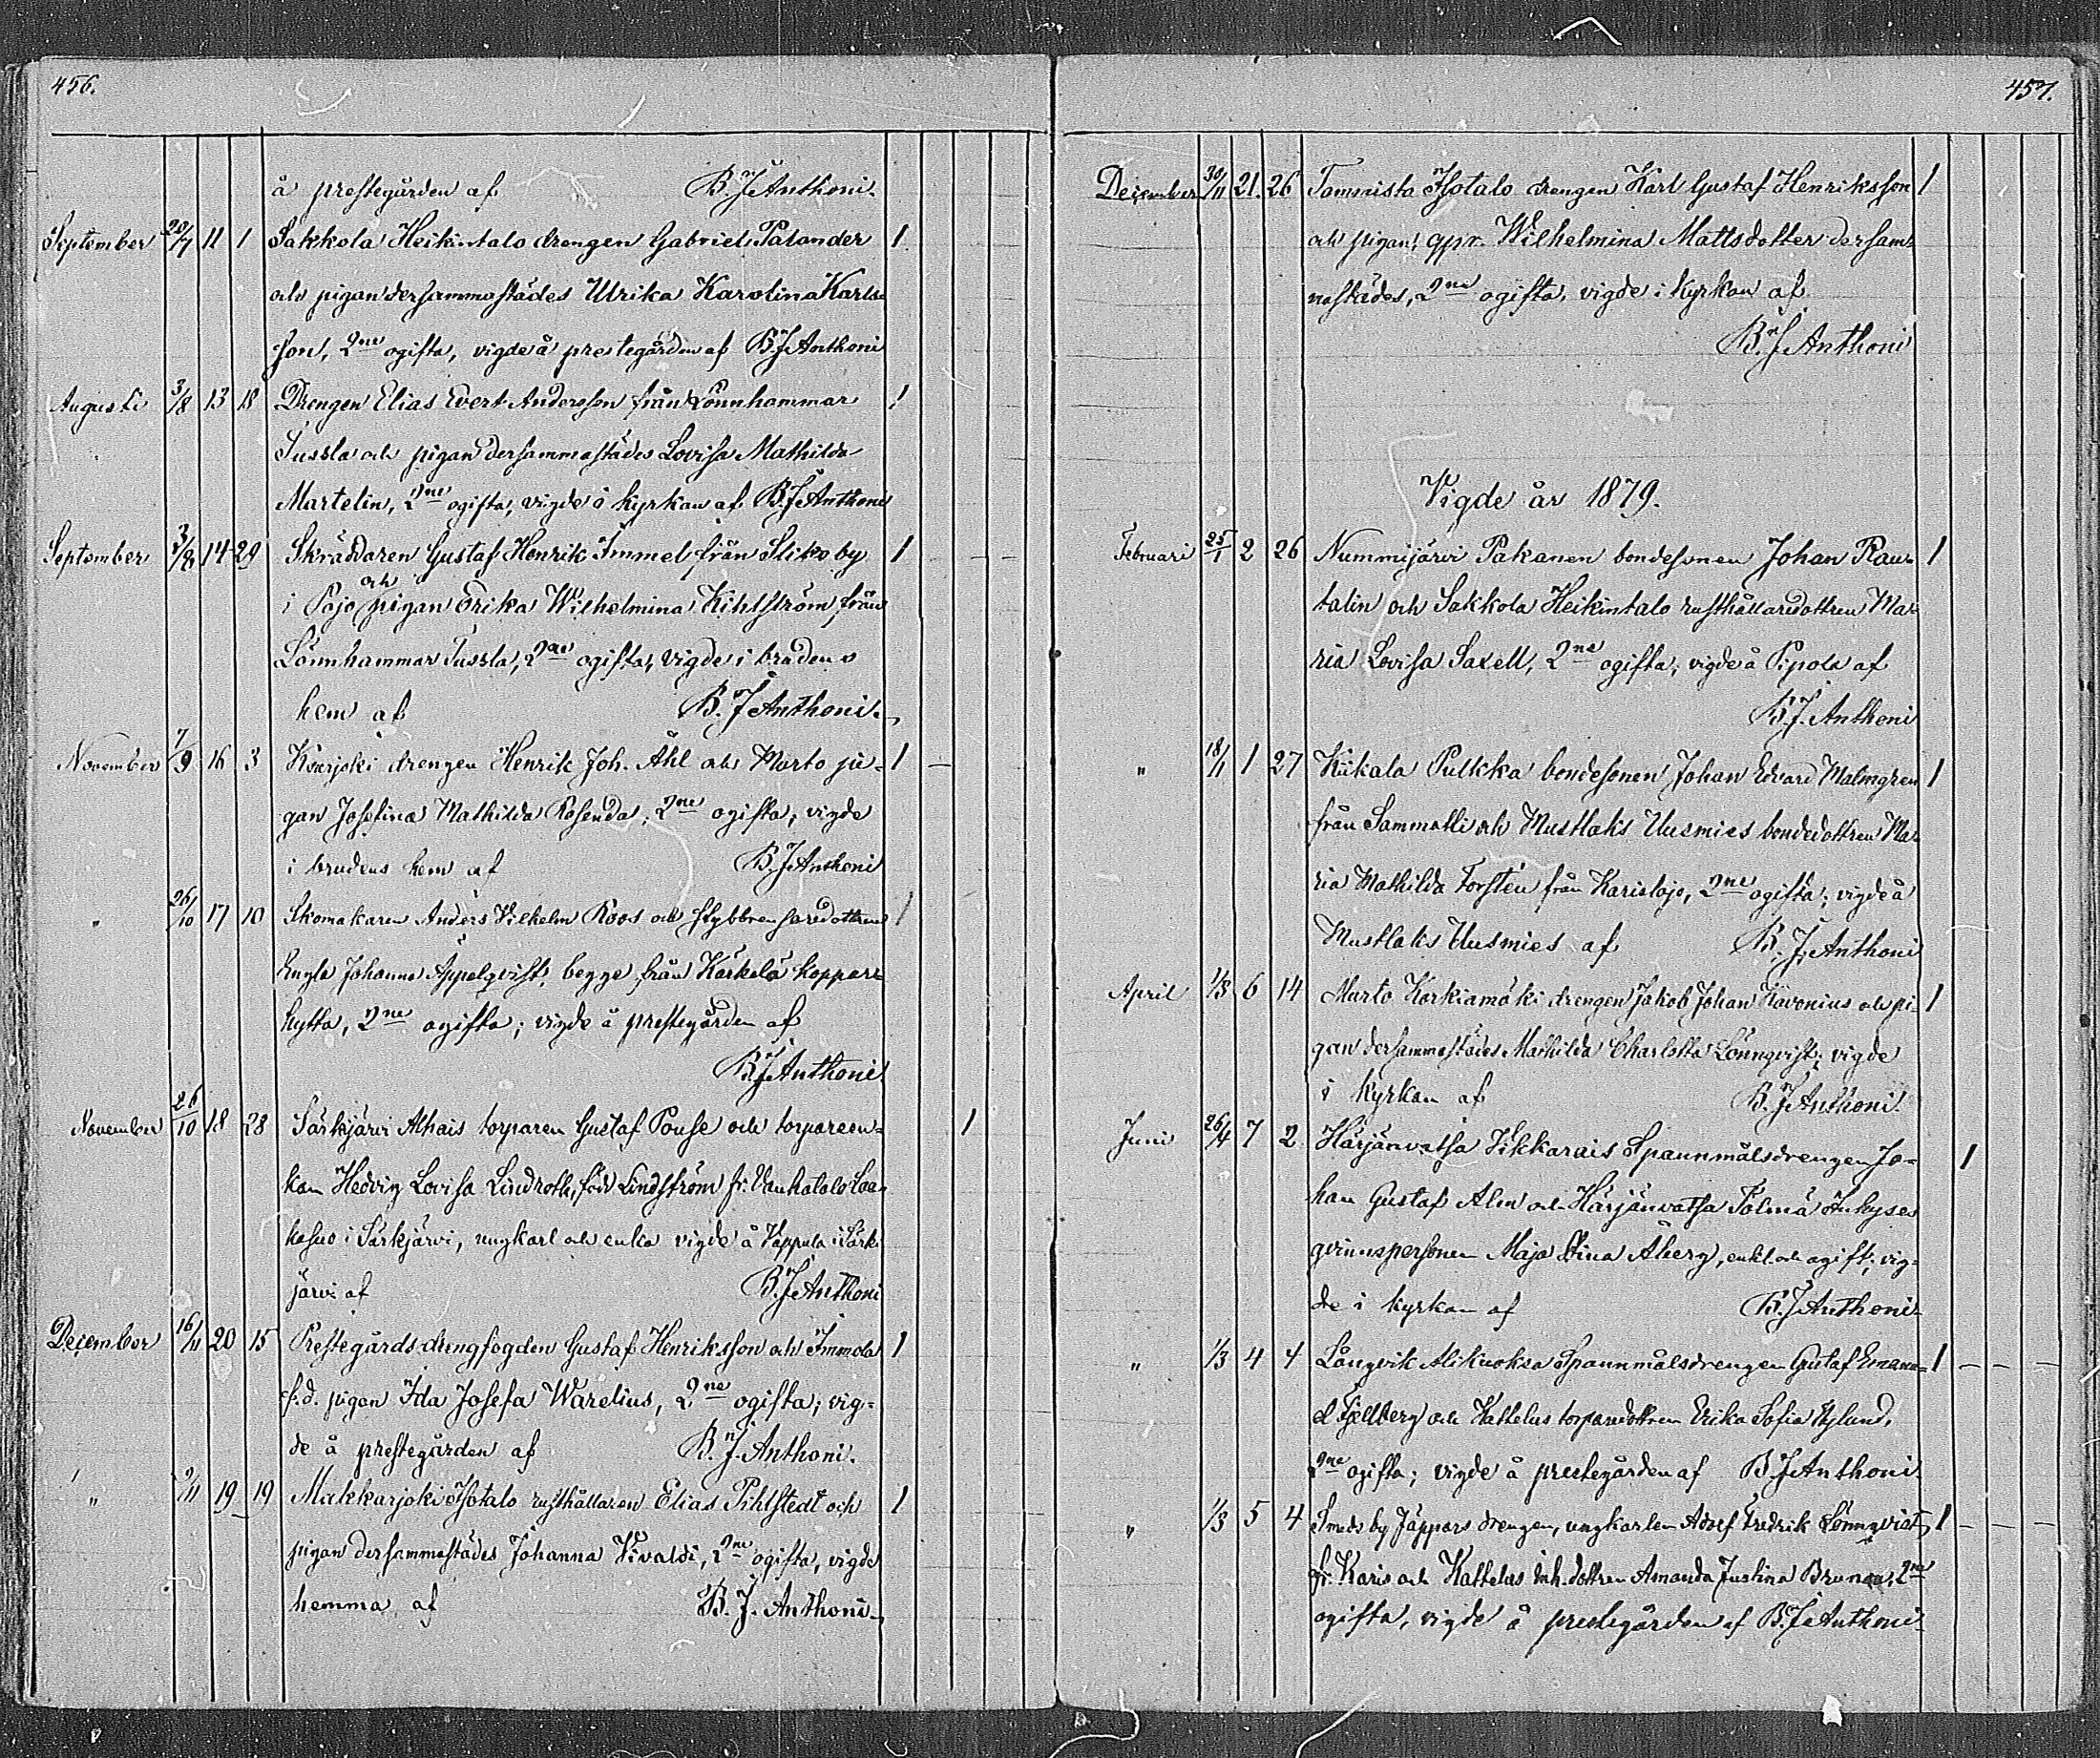 456.
å prestegården af B. J. Anthoni.
September 20/7 11 1 Sakkola Heikintalo drengen Gabriel Palander 1
och pigan dersammastädes Ulrika Karolina Karls-
son, 2ne ogifta, vigde å prestegården af B. J. Anthoni
Augusti 3/8 13 18 Drengen Elias Evert Andersson från Lönnhammar 1
Tussla och pigan dersammastädes Lovisa Mathilda
Martelin, 2ne ogifta, vigde i kyrkan af B. J. Anthoni
September 3/8 14 29 Skräddaren Gustaf Henrik Immel från Sliko by 1
i Pojo och pigan Erika Wilhelmina Kihlström, från
Lönnhammar Tussla, 2ne ogifta, vigde i brudens
hem af B. J. Anthoni.
November 7/9 16 3 Koorjoki drengen Henrik Joh. Åhl och Murto pi- 1
gan Josefina Mathilda Rosenda, 2ne ogifta, vigde
i brudens hem af B. J. Anthoni
" 26/10 17 10 Skomakaren Anders Vilhelm Roos och stybbrensaredottren 1
Engla Johanna Appelqvist, begge från Kärkelä koppar-
hytta, 2ne ogifta; vigde å prestegården af
B. J. Anthoni
November 26/10 18 28 Särkjärvi Alhais torparen Gustaf Pouse och torpareen- 1
kan Hedvig Lovisa Lindroth, född Lindström fr. Vanhatalo Laa-
kasuo i Särkjärvi, ungkarl och enka vigde å Vappula i Särk-
järvi af B. J. Anthoni
December 16/11 20 15 Prestegårds drengfogden Gustaf Henriksson och Immola 1
f.d. pigan Ida Josefa Warelius, 2ne ogifta; vig-
de å prestegården af B. J. Anthoni.
" 9/11 19 19 Makkarjoki Isotalo rusthållaren Elias Pihlstedt och 1
pigan dersammastädes Johanna Vivaldi, 2ne ogifta, vigde
hemma af B. J. Anthoni
457.
December 30/11 21. 26 Tommista Isotalo drengen Karl Gustaf Henriksson 1
och pigan, qpr. Wilhelmina Mattsdotter dersam-
mastädes, 2ne ogifta, vigde i kyrkan af
B. J. Anthoni
Vigde år 1879.
Februari 25/1 2 26 Nummijärvi Pakanen bondesonen Johan Rau- 1
talin och Sakkola Heikintalo rusthållaredottren Ma-
ria Lovisa Saxell, 2ne ogifta, vigde å Pipola af
B. J. Anthoni
" 18/1 1 27 Kiikala Pulkka bondesonen Johan Edvard Malmgren 1
från Sammatti och Mustlaks Uusmies bondedottren Ma-
ria Mathilda Forstén från Karislojo, 2ne ogifta; vigde å
Mustlaks Uusmies af B. J. Anthoni
April 1/3 6 14 Murto Korkiamäki drengen Jakob Johan Kavonius och pi- 1
gan dersammastädes Mathilda Charlotta Lönnqvist; vigde
i kyrkan af B. J. Anthoni.
Juni 26/4 7 2 Härjänvatsa Vikkarais Spannmålsdrengen Jo- 1
han Gustaf Alm och Härjänvatsa Tolmä Inhyses
qvinnspersonen Maja Stina Åberg, enkl. och ogift; vig-
de i kyrkan af B. J. Anthoni
" 1/3 4 4 Långvik Alikuoksa Spannmålsdrengen Gustaf Emanu- 1
el Fjellberg och Kattelus torparedottren Erika Sofia Nylund,
2ne ogifta; vigde å prestegården af B. J. Anthoni
" 1/3 5 4 Smeds by Jäppars drengen, ungkarlen Adolf Fredrik Lönnqvist 1
fr. Karis och Kattelus inh. dottren Amanda Justina Brunou, 2ne
ogifta, vigde å prestegården af B. J. Anthoni